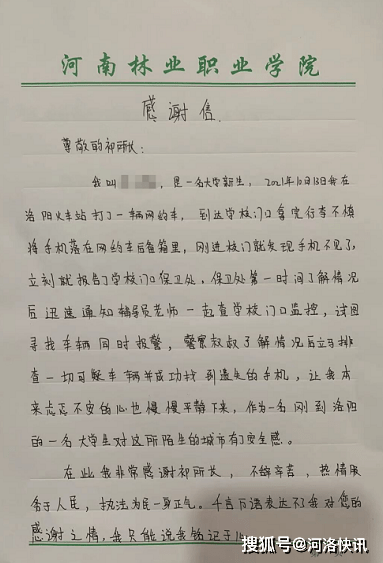 河南林业职业学院
感谢信
尊敬的祁所长:
我叫 , 是一名大学新生, 2021年10月13日我在
洛阳火车站打了一辆网约车, 到达学校门口拿完行李不慎
将手机落在网约车后备箱里, 刚进校门就发现手机不见了,
立刻就报告了学校门口保卫处。保卫处第一时间了解情况
后迅速通知辅导员老师一起查学校门口监控, 试图
寻找车辆同时报警, 警察叔叔了解情况后立马排
查一切可疑车辆并成功找到遗失的手机, 让我本
来忐忑不安的心也慢慢平静下来, 作为一名刚到洛阳
的一名大学生对这所陌生的城市有了安全感。
在此我非常感谢祁所长, 不辞辛苦, 热情服
务于人民, 执法为民一身正气。千言万语表达不了我对您的
感谢之情, 我只能说我铭记于心
搜狐号@河洛快讯